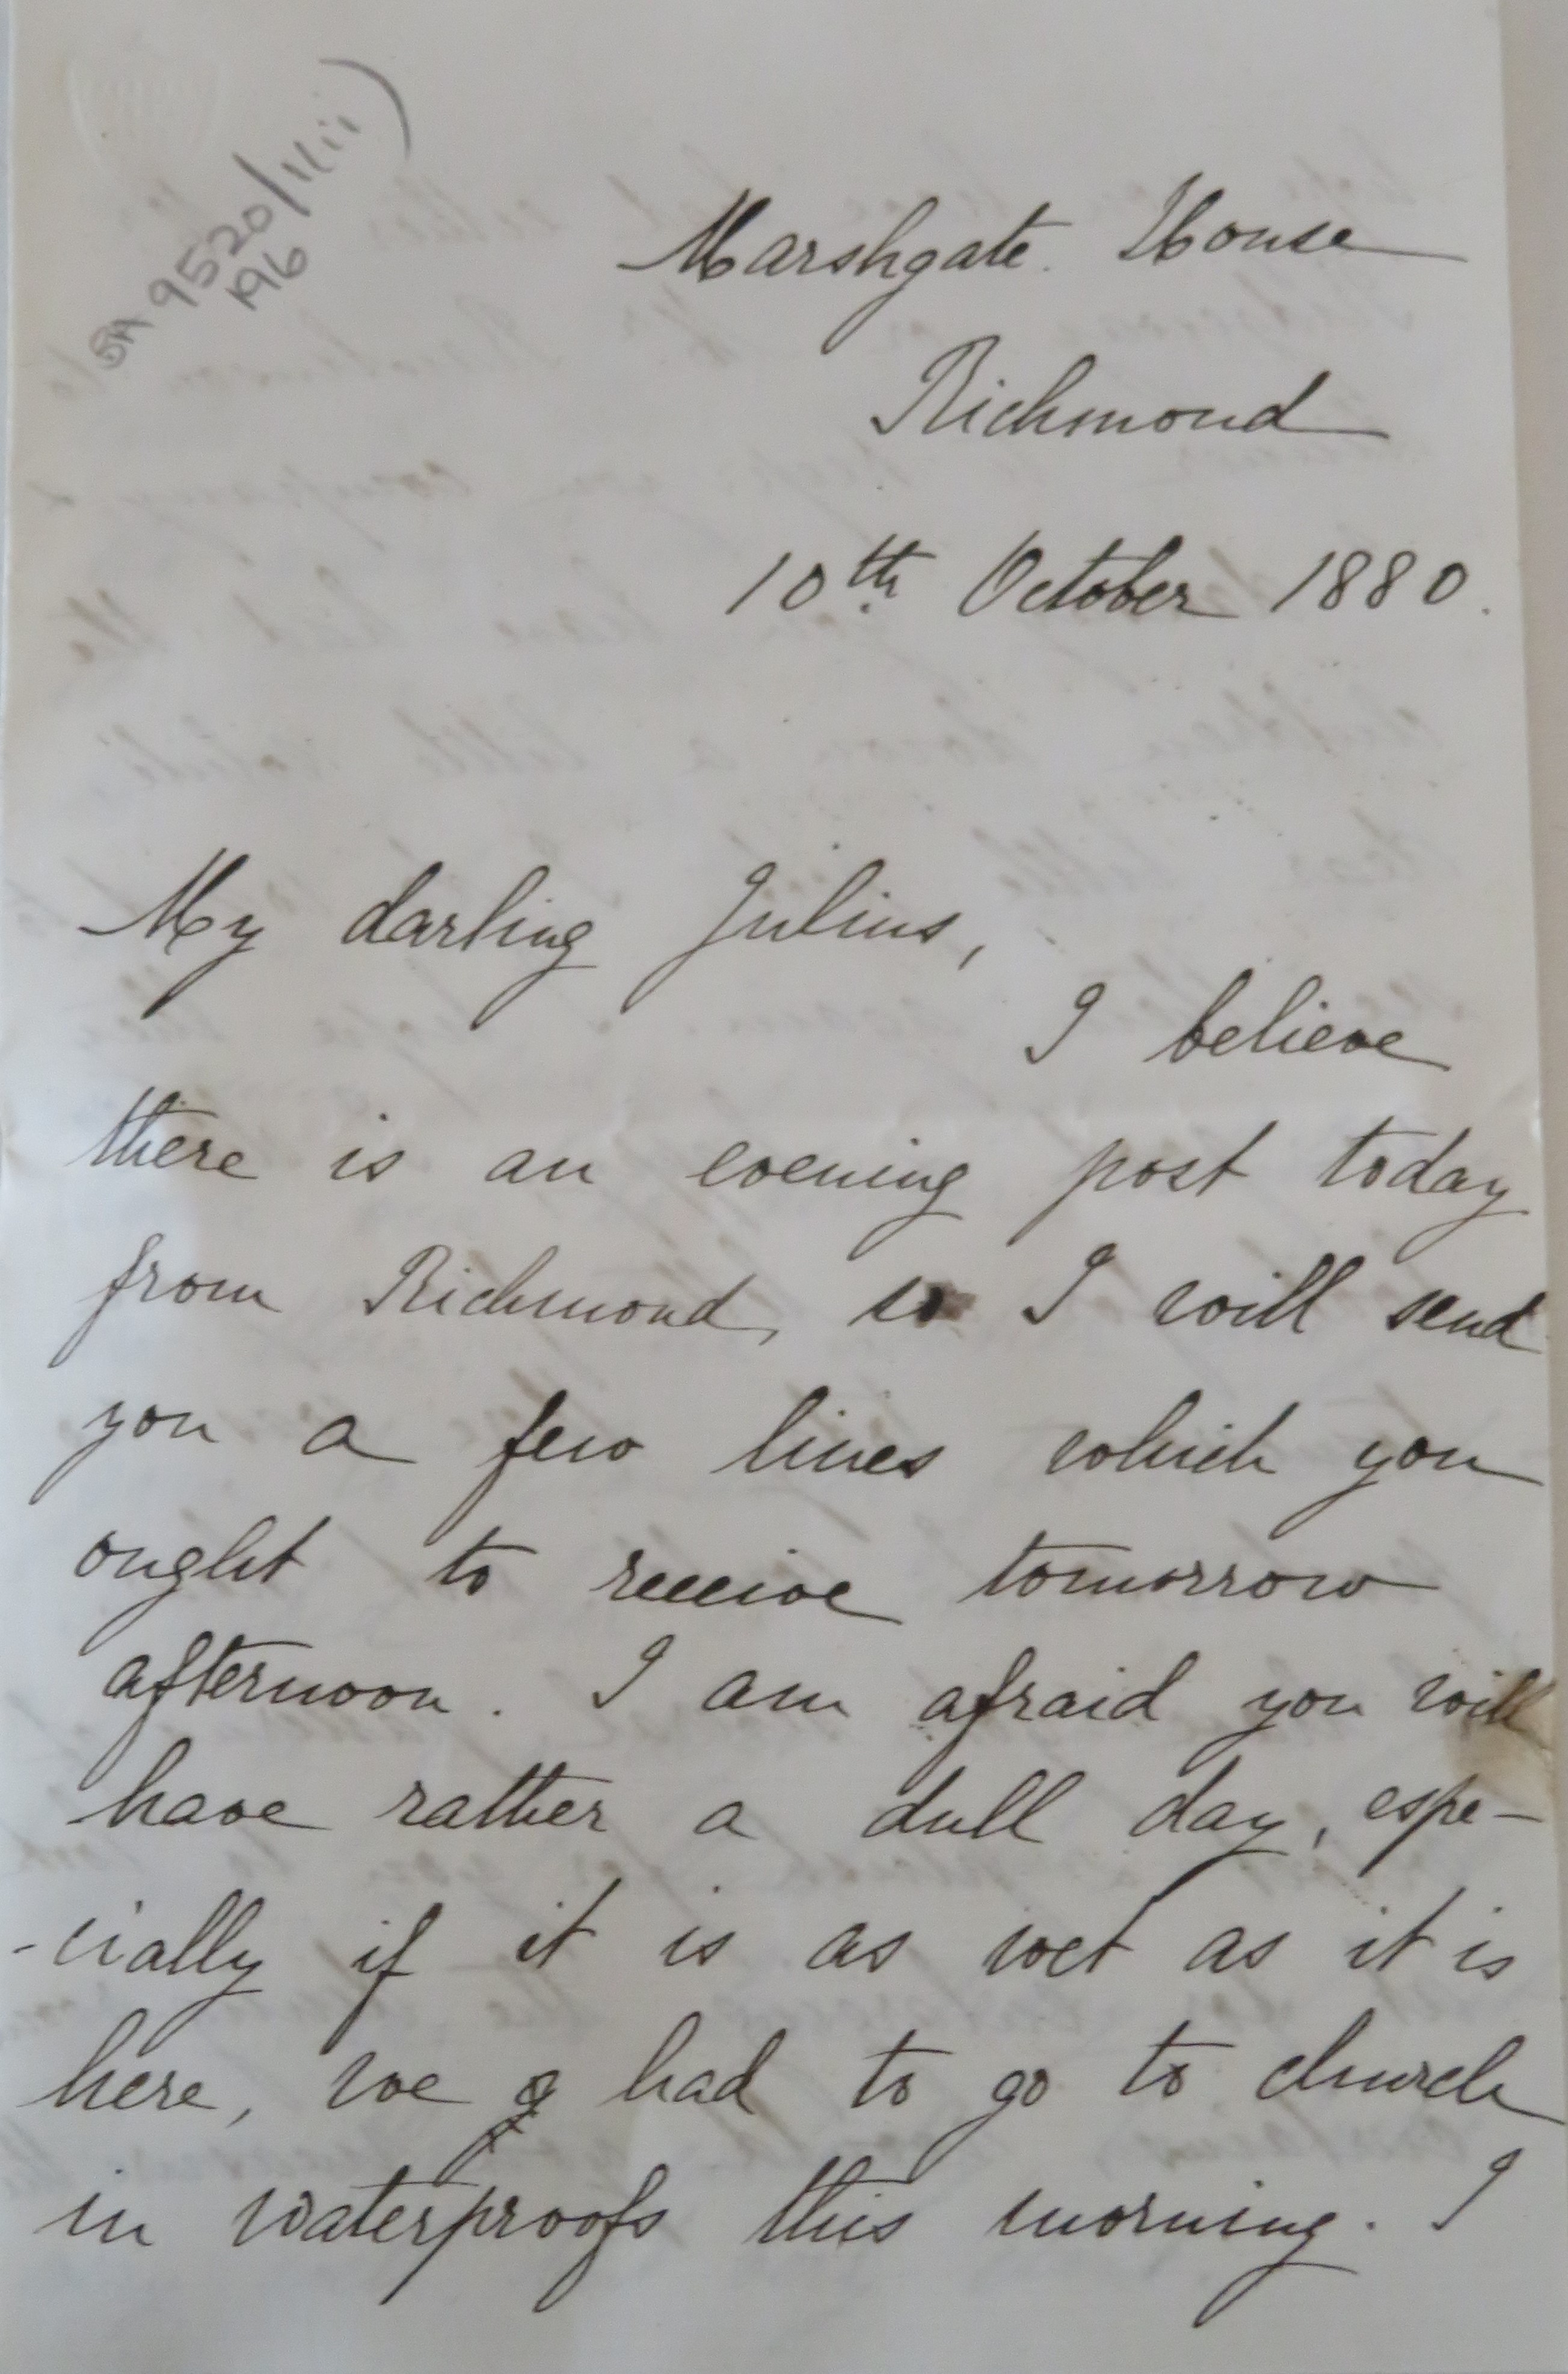 9520/1(ii)
196
Marshgate House
Richmond
10th October 1880.
My darling Julius,
I believe
there is an evening post today
from Richmond, so I will send
you a few lines which you
ought to receive tomorrow
afternoon. I am afraid you will
have rather a dull day, espe-
-cially if it is as wet as it is
here, we had to go to church
in waterproofs this morning. I